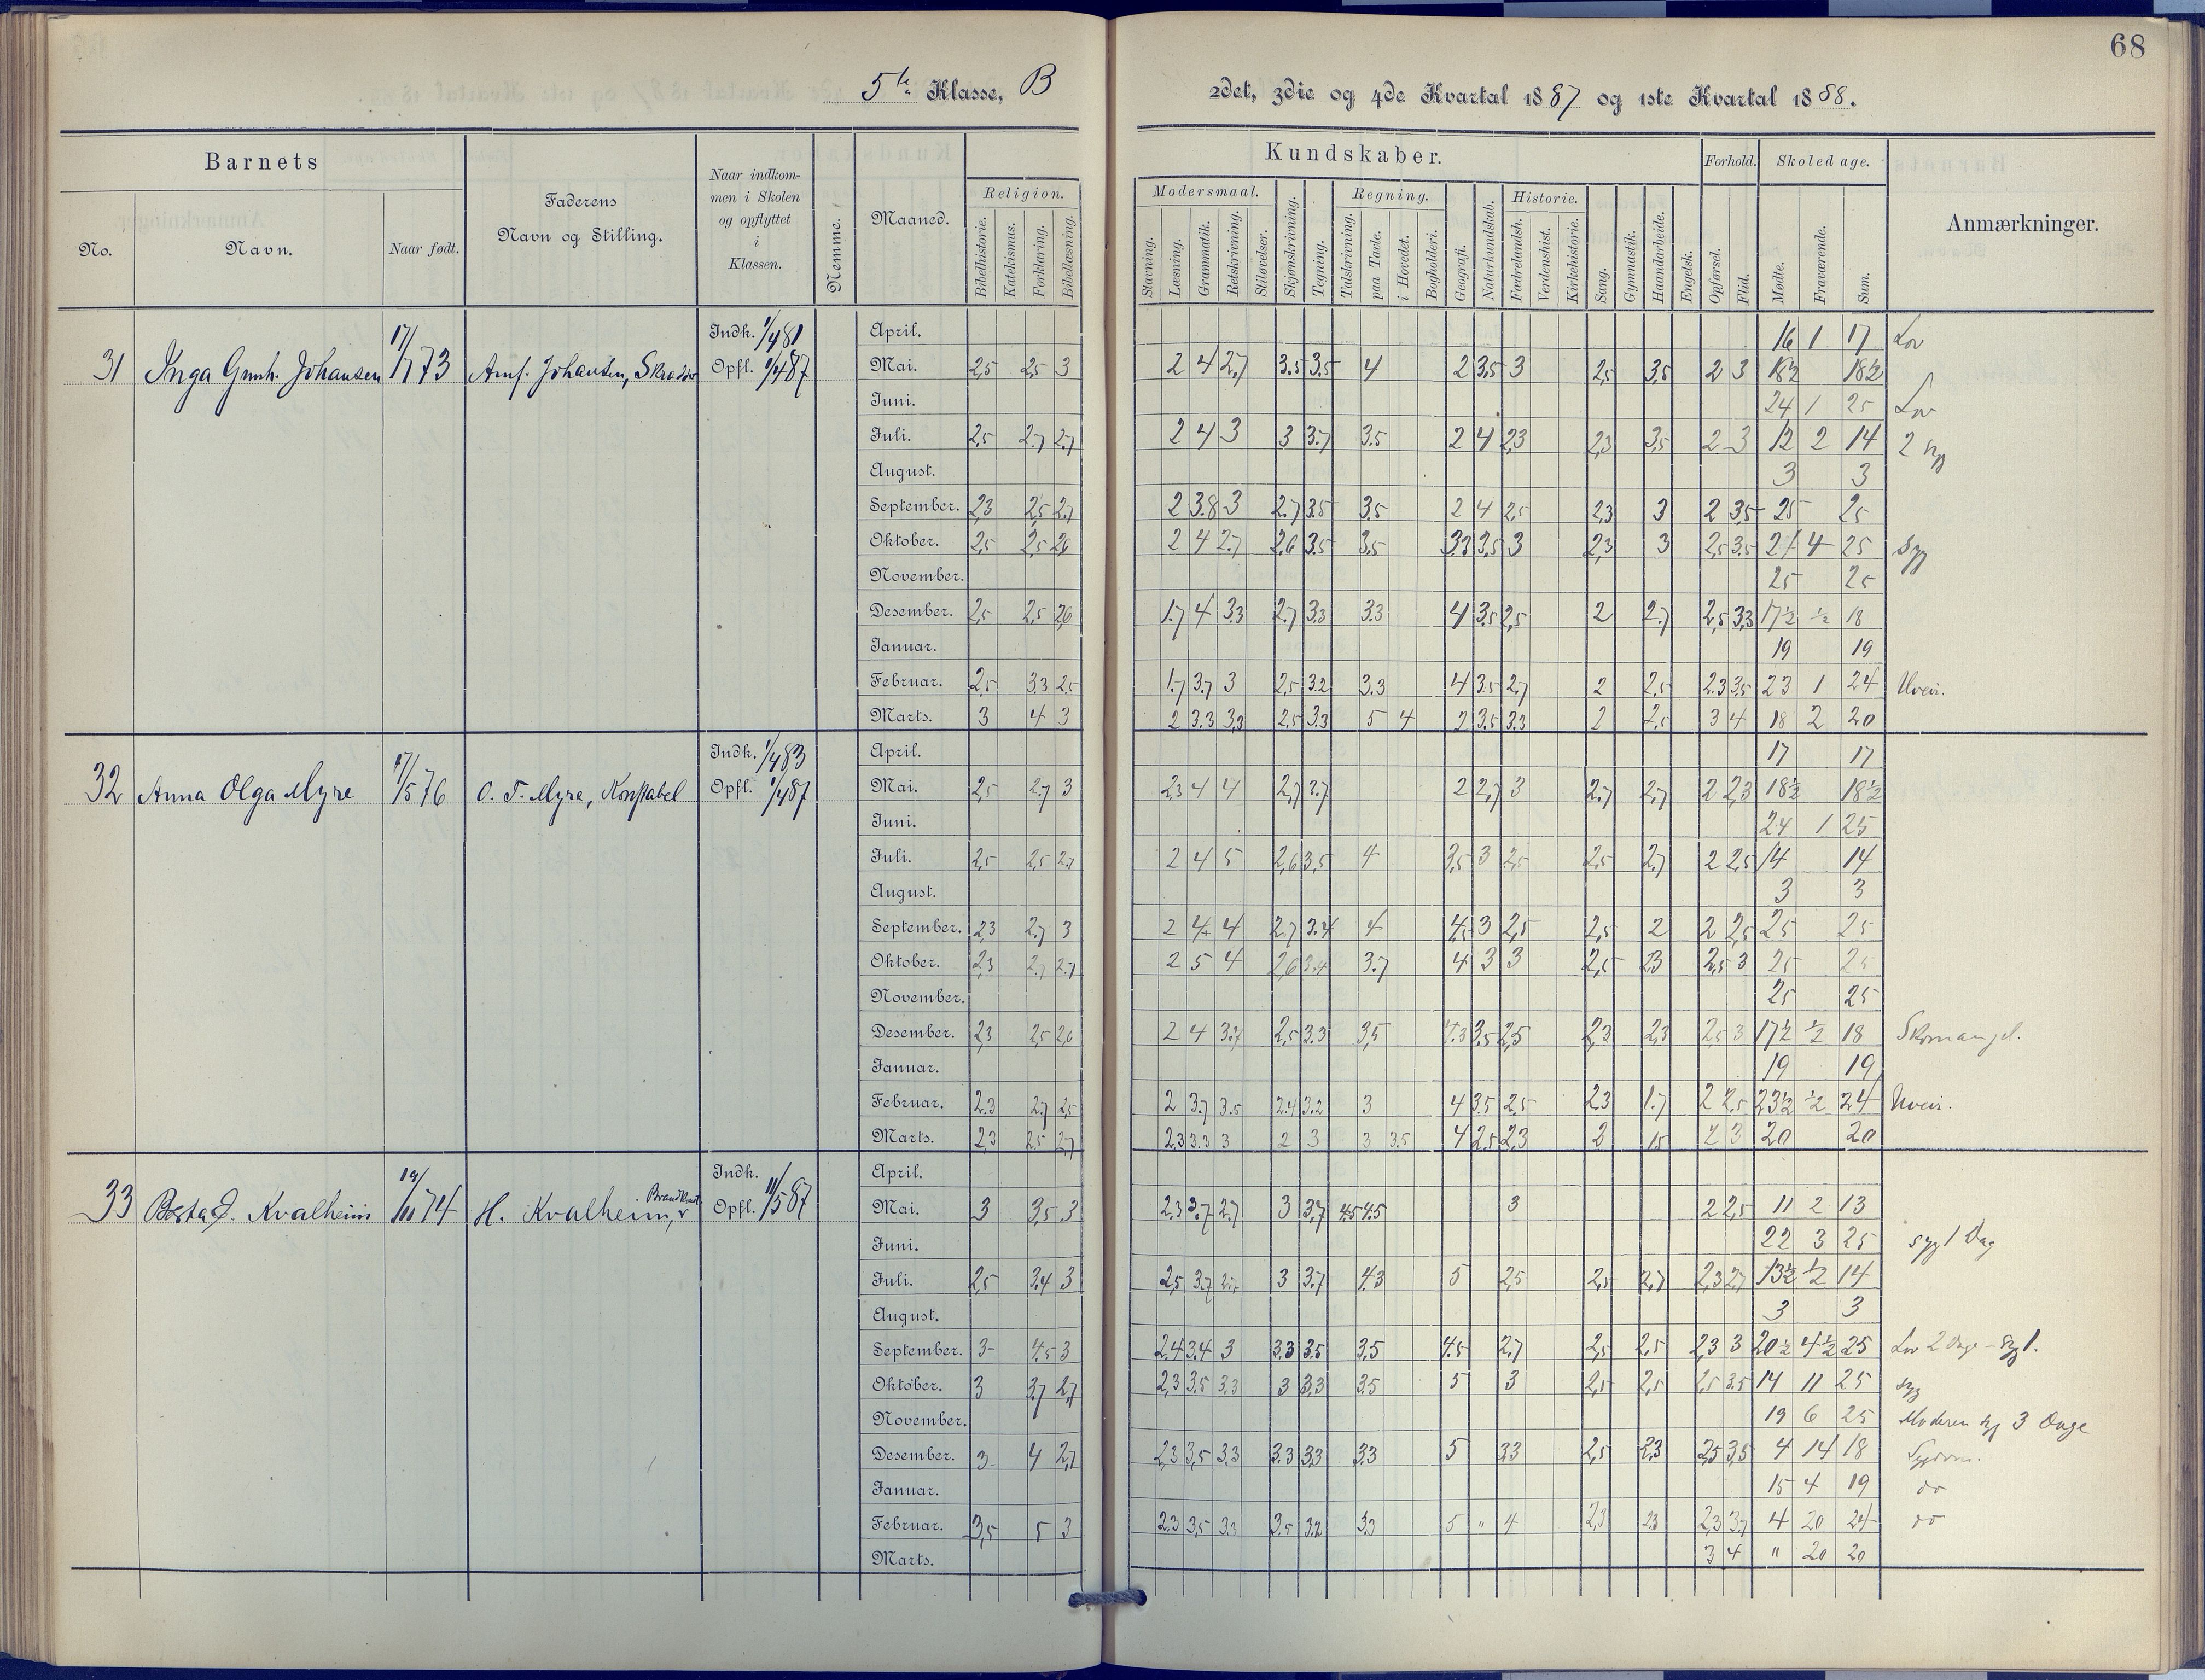 68
5te Klasse, B
2det, 3die og 4de Kvartal 1887 og 1ste Kvartal 1888.
Barnets
No.
Navn.
Naar født.
Faderens
Navn og Stilling.
Naar indkom-
men i Skolen
og opflyttet
i
Klassen.
Nemme.
Maaned.
Religion.
Bibelhistorie.
Katekismus.
Forklaring.
Bibellæsning.
Kundskaber.
Modersmaal.
Stavning.
Læsning.
Grammatik.
Retskrivning.
Stiløvelser.
Skjønskrivning.
Tegning.
Regning.
Talskrivning.
paa Tavle.
i Hovedet.
Bogholderi.
Geografi.
Naturkundskab.
Historie.
Fædrelandsh.
Verdenshist.
Kirkehistorie.
Sang.
Gymnastik.
Haandarbeide.
Engelsk.
Forhold.
Opførsel.
Flid.
Skoledage.
Mødte.
Fraværende.
Sum.
Anmærkninger.
31 Inga Gunh. Johansen 17/1 73
Indk. 1/4 81
Opfl. 1/4 87
April. 16 1 17 Lov
Mai. 2,5 2,5 3 2 4 2,7 3.5 3.5 4 2 3.5 3 2,5 3,5 2 3 18½ 18½
Juni. 24 1 25 Lov
Juli. 2,5 2.7 2.7 2 4 3 3 3.7 3.5 2 4 2,3 2,3 3,5 2 3 12 2 14 2 syg
August. 3 3
September. 2,3 2,5 2.7 2 3.8 3 2.7 3.5 3.5 2 4 2,5 2,3 3 2 3,5 25 25
Oktober. 2,5 2,5 2,6 2 4 2.7 2.6 3.5 3.5 3.3 3,5 3 2,3 3 2,5 3.5 21 4 25 Syg
November. 25 25
Desember. 2,5 2,5 2,6 1.7 4 3.3 2.7 3.3 3.3 4 3.5 2,5 2 2.7 2,5 3,3 17½ ½ 18
Januar. 19 19
Februar. 2,5 3.3 2,5 1.7 3.7 3 2,5 3.2 3.3 4 3.5 2.7 2 2,5 2.3 3.5 23 1 24 Uveir.
Marts. 3 4 3 2 3.3 3,3 2,5 3.3 5 4 2 3.5 3.3 2 2,5 3 4 18 2 20
32 Anna Olga Myre 17/5 76 O. T. Myre, Konstabel
Indk. 1/4 83
Opfl. 1/4 87
April. 17 17
Mai. 2,5 2.7 3 2,3 4 4 2,7 3.7 2 2,7 3 2.7 2,7 2 2,3 18½ 18½
Juni. 24 1 25
Juli. 2,5 2,5 2.7 2 4 5 2,6 3,5 4 3,5 3 2,5 2,5 2,7 2 2,5 14 14
August. 3 3
September. 2,3 2.7 3 2 4 4 2.7 3.4 4 4,5 3 2,5 2,5 2 2 2,5 25 25
Oktober. 2,3 2.7 2.7 2 5 4 2,6 3.4 3.7 4 3 3 2,5 2,3 2,5 3 25 25
November. 25 25
Desember. 2,3 2,5 2,6 2 4 3.7 2,5 3.3 3,5 4.3 3.5 2,5 2,3 2,3 2,5 3 17½ ½ 18 Skomangel.
Januar. 19 19
Februar. 2.3 2.7 2,5 2 3.7 3.5 2.4 3.2 3 4 3.5 2,5 2.3 1.7 2 2,5 23½ ½ 24 Uveir.
Marts. 2,3 2.5 2,7 2,3 3.3 3 2 3 3 3.5 4 2.5 2,3 2 1,5 2 3 20 20
33 Kvalheim 19/11 74 H. Kvalheim,
Indk.
Opfl. 11/5 87
April.
Mai. 3 3,5 3 2.3 3.7 2.7 3 3.7 4.5 4.5 3 2 2,5 11 2 13
Juni. 22 3 25 syg 1 Dag
Juli. 2,5 3.4 3 2,5 3.7 3 3.7 4.3 5 2,5 2,5 2,7 2,3 2,7 13½ ½ 14
August. 3 3
September. 3 4.5 3 2.4 3.4 3 3.3 3.5 3,5 4.5 2.7 2,5 2,5 2,3 3 20½ 4½ 25 Lov 2 Dage - Syg 1.
Oktober. 3 3.7 2,7 2,3 3.5 3.3 3 3.3 3.5 5 3 2,5 2,5 2,5 3.5 14 11 25 syg
November. 19 6 25 Moderen syg 3 Dage
Desember. 3 4 2,7 2,3 3,5 3.3 3.3 3.3 3.3 5 3.3 2,5 2,3 2,5 3,5 4 14 18 Sygdom.
Januar. 15 4 19 do
Februar. 3,5 5 3 2.3 3,5 3.3 3.5 3.2 3.3 5 " 4 2,3 2,3 2,3 3,7 4 20 24 do
Marts. 3 4 " 20 20